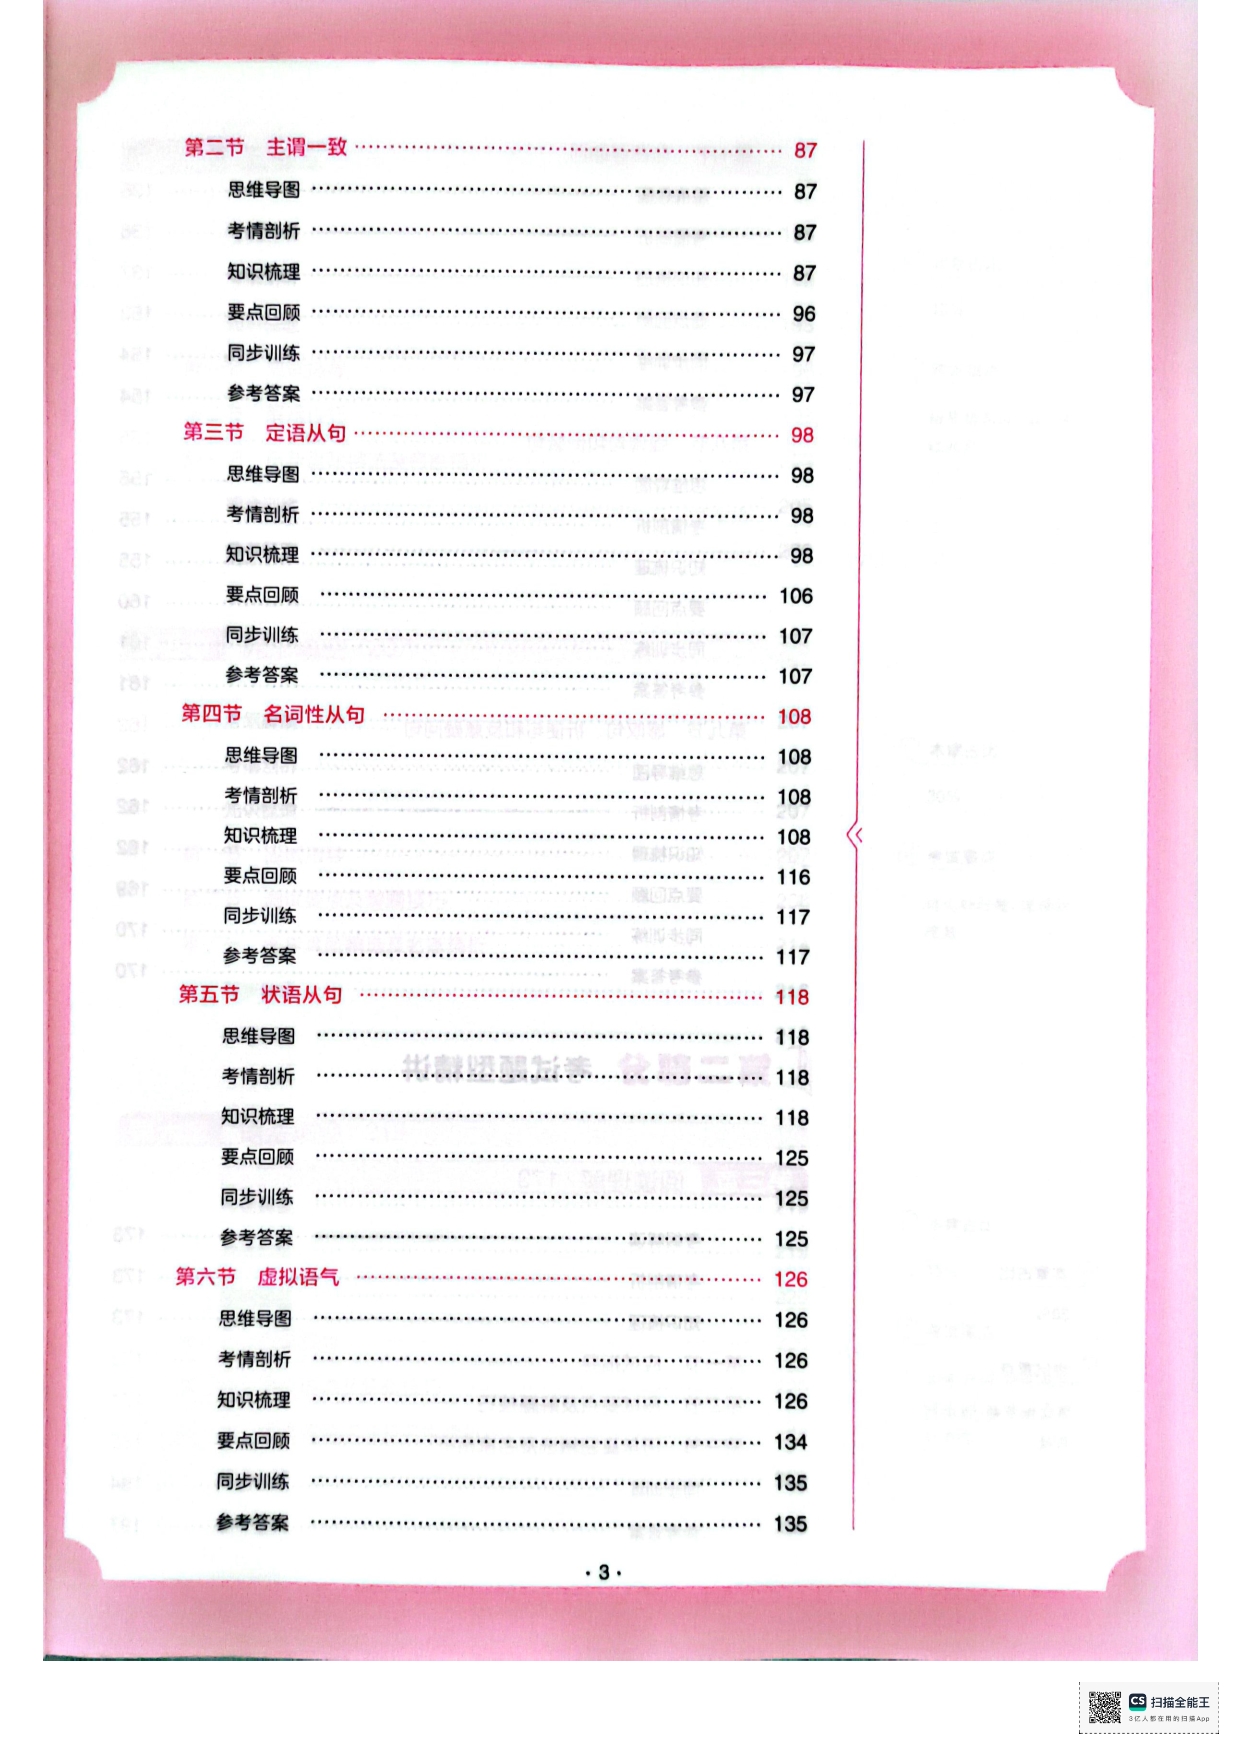 第二节 主谓一致 …… 87
思维导图 …… 87
考情剖析 …… 87
知识梳理 …… 87
要点回顾 …… 96
同步训练 …… 97
参考答案 …… 97
第三节 定语从句 …… 98
思维导图 …… 98
考情剖析 …… 98
知识梳理 …… 98
要点回顾 …… 106
同步训练 …… 107
参考答案 …… 107
第四节 名词性从句 …… 108
思维导图 …… 108
考情剖析 …… 108
知识梳理 …… 108
要点回顾 …… 116
同步训练 …… 117
参考答案 …… 117
第五节 状语从句 …… 118
思维导图 …… 118
考情剖析 …… 118
知识梳理 …… 118
要点回顾 …… 125
同步训练 …… 125
参考答案 …… 125
第六节 虚拟语气 …… 126
思维导图 …… 126
考情剖析 …… 126
知识梳理 …… 126
要点回顾 …… 134
同步训练 …… 135
参考答案 …… 135
· 3 ·
CS 扫描全能王
3亿人都在用的扫描App